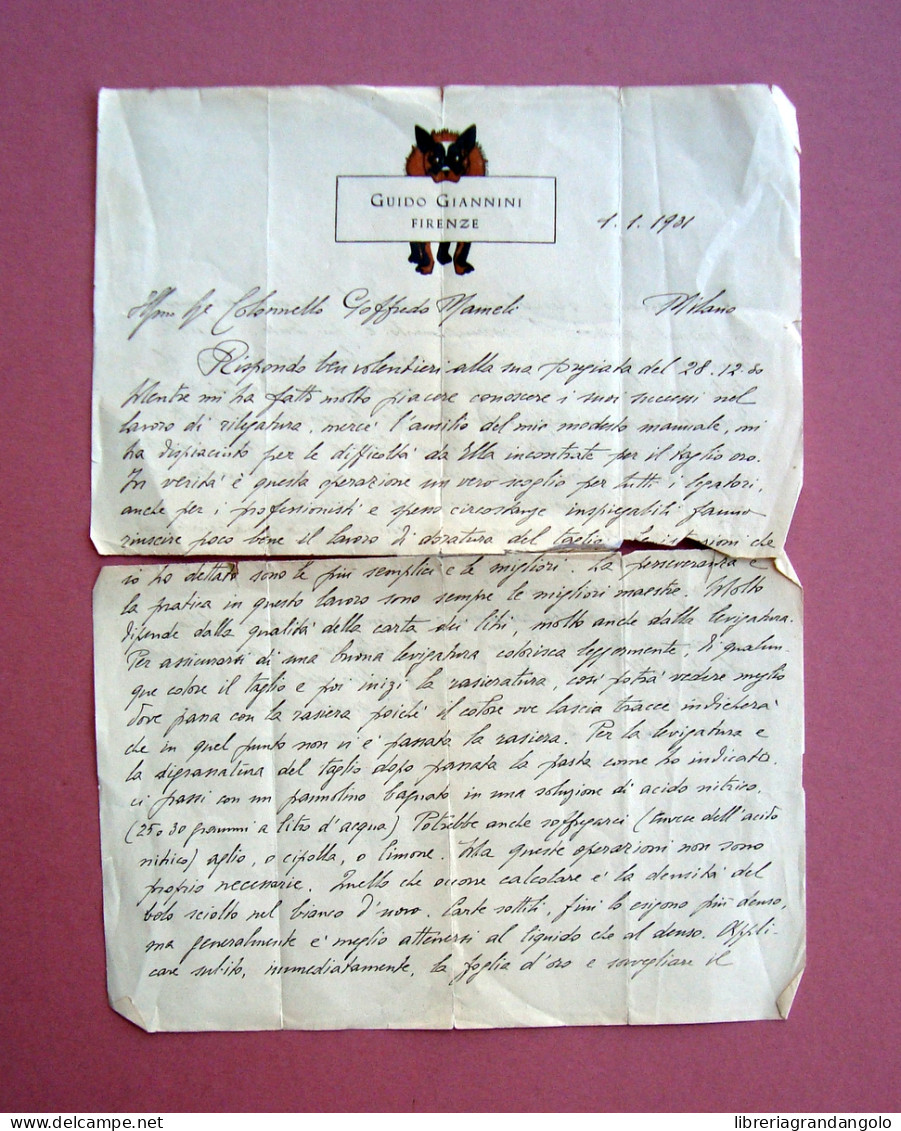 GUIDO GIANNINI
FIRENZE
1.1.1931
Colonnello Goffredo Mameli Milano
Rispondo ben volentieri alla sua pregiata del 28.12.30
Mentre mi ha fatto molto piacere conoscere i suoi successi nel
lavoro di rilegatura, mercè l'ausilio del mio modesto manuale, mi
ha dispiaciuto per le difficoltà da Ella incontrate per il taglio oro.
In verità è questa operazione un vero scoglio per tutti i legatori,
anche per i professionisti e spesso circostanze inspiegabili fanno
riuscire poco bene il lavoro di doratura del taglio. Le istruzioni che
io ho dettato sono le più semplici e le migliori. La perseveranza e
la pratica in questo lavoro sono sempre le migliori maestre. Molto
dipende dalla qualità della carta dei libri, molto anche dalla levigatura.
Per assicurarsi di una buona levigatura colorisca leggermente, di qualun-
que colore il taglio e poi inizi la rasieratura, così potrà vedere meglio
dove passa con la rasiera poiché il colore ove lascia tracce indicherà
che in quel punto non vi è passata la rasiera. Per la levigatura e
la digrassatura del taglio dopo passata la pasta come ho indicato,
ci passi con un pannolino bagnato in una soluzione di acido nitrico.
(25 o 30 grammi a litro d'acqua) Potrebbe anche soffregarci (invece dell'acido
nitrico) aglio, o cipolla, o limone. Ma queste operazioni non sono
proprio necessarie. Quello che occorre calcolare è la densità del
bolo sciolto nel bianco d'uovo. Carte sottili, fini lo esigono più denso,
ma generalmente è meglio attenersi al liquido che al denso. Appli-
care subito, immediatamente, la foglia d'oro e sorvegliare il
libreriagrandangolo